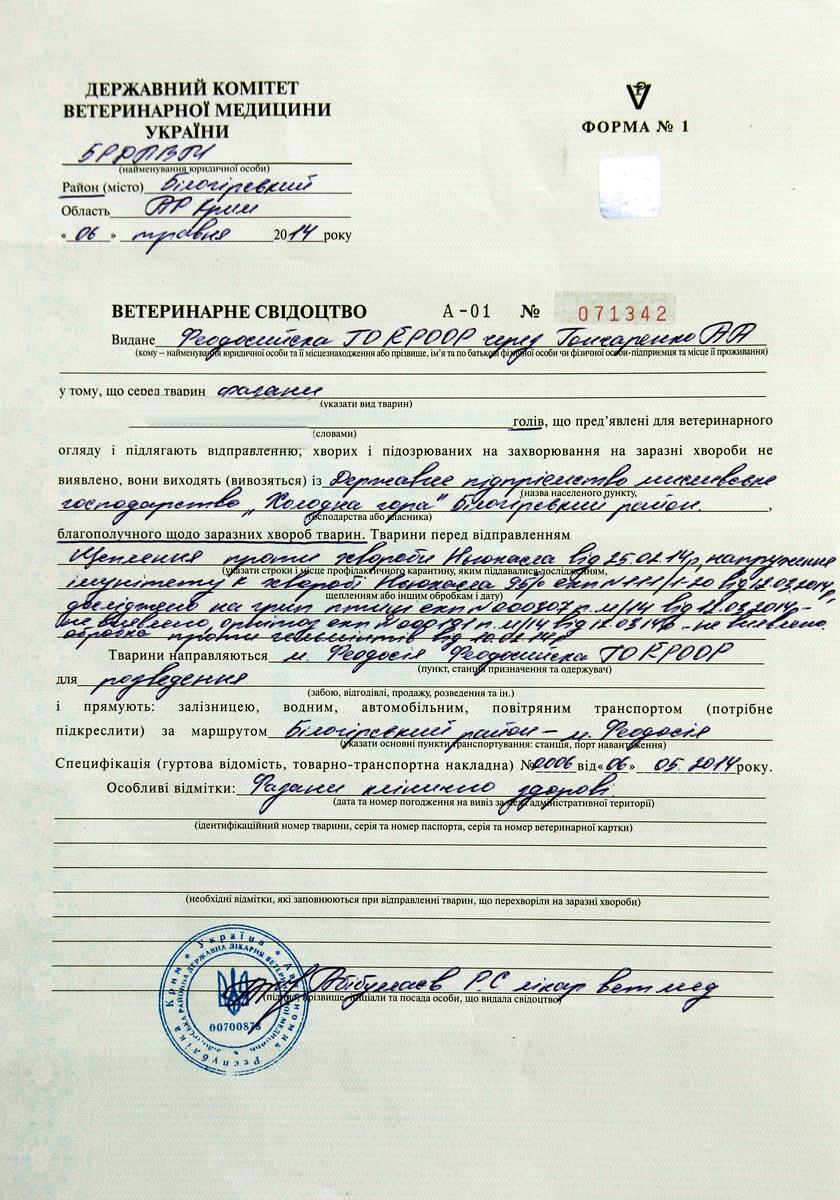 ДЕРЖАВНИЙ КОМІТЕТ
ВЕТЕРИНАРНОЇ МЕДИЦИНИ
УКРАЇНИ
БРДЛВМ
(найменування юридичної особи)
Район (місто) Білогірський
Область АР Крим
« 06 » травня 2014 року
ФОРМА № 1
ВЕТЕРИНАРНЕ СВІДОЦТВО А-01 № 071342
Видане Феодосийска ГО КРООР через Гончаренко АА
(кому – найменування юридичної особи та її місцезнаходження або прізвище, ім’я та по батькові фізичної особи чи фізичної особи-підприємця та місце її проживання)
у тому, що серед тварин фазани
(указати вид тварин)
голів, що пред’явлені для ветеринарного
(словами)
огляду і підлягають відправленню, хворих і підозрюваних на захворювання на заразні хвороби не
виявлено, вони виходять (вивозяться) із Державне підприємство мисливське
(назва населеного пункту,
господарство „Холодна гора" Білогірський район.
господарства або власника)
благополучного щодо заразних хвороб тварин. Тварини перед відправленням
Щеплення проти хвороби Ньюкасла від 25.02.14р, напруження
(указати строки і місце профілактичного карантину, яким піддавались дослідженням,
імунітету к хворобі Ньюкасла 95% експ N 111/1-20 від 12.03.2014р,
щепленням або іншим обробкам і дату)
досліджено на грип птиці експ N 000307 п.м/14 від 12.03.2014р -
не виявлено, орнітоз експ N 000131 п.м/14 від 12.03.14р - не виявлено.
обробка проти гельмінтів від 10.02.14р
Тварини направляються м. Феодосія Феодосийска ГО КРООР
(пункт, станція призначення та одержувач)
для розведення
(забою, відгодівлі, продажу, розведення та ін.)
і прямують: залізницею, водним, автомобільним, повітряним транспортом (потрібне
підкреслити) за маршрутом Білогірський район – м. Феодосія
(указати основні пункти транспортування: станція, порт навантаження)
Специфікація (гуртова відомість, товарно-транспортна накладна) № 0006 від «06» 05. 2014 року.
Особливі відмітки: Фазани клінично здорові.
(дата та номер погодження на вивіз за межі адміністративної території)
(ідентифікаційний номер тварини, серія та номер паспорта, серія та номер ветеринарної картки)
(необхідні відмітки, які заповнюються при відправленні тварин, що перехворіли на заразні хвороби)
Україна * Автономна Республіка Крим
РАЙОННА ДЕРЖАВНА ЛІКАРНЯ ВЕТЕРИНАРНОЇ МЕДИЦИНИ
Абібуллаєв Р.С лікар ветмед
(підпис, прізвище, ініціали та посада особи, що видала свідоцтво)